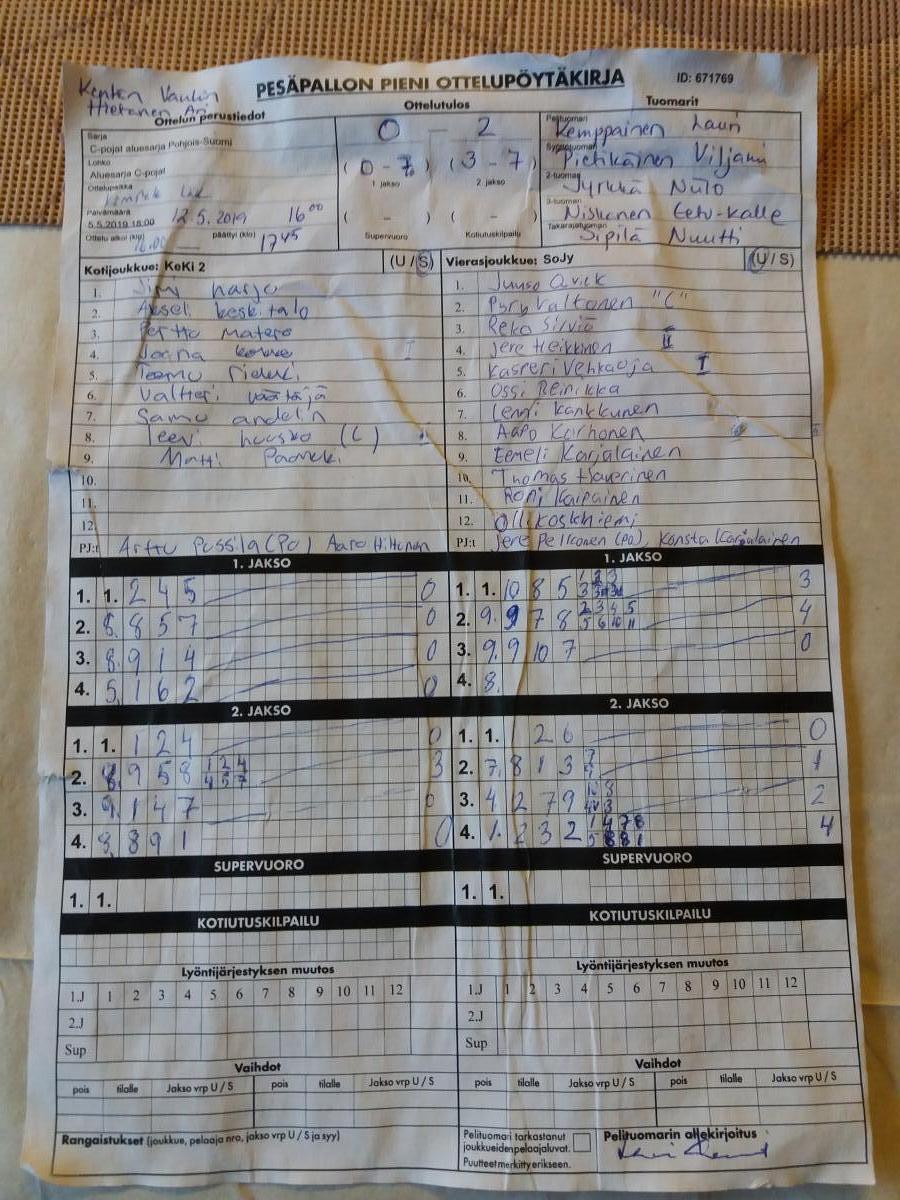 Kenten Vaulin
PESÄPALLON PIENI OTTELUPÖYTÄKIRJA
ID: 671769
Hietanen Ari
Ottelun perustiedot
Ottelutulos
Tuomarit
Sarja
C-pojat aluesarja Pohjois-Suomi
Lohko
Aluesarja C-pojat
Ottelupaikka
Päivämäärä
5.5.2019 18:00 12.5.2019 16 00
Ottelu alkoi (klo) 16.00 päättyi (klo) 1745
0 — 2
(0 - 7) (3 - 7)
1. jakso 2. jakso
( - ) ( - )
Supervuoro Kotiutuskilpailu
Pelituomari
Kemppainen Lauri
Syöttötuomari
Pietikäinen Viljami
2-tuomari
Jyrkkä Niilo
3-tuomari
Niskanen Eetu-Kalle
Takarajatuomari
Sipilä Nuutti
Kotijoukkue: KeKi 2 (U / S)
1. Jimi harju
2. Akseli keskitalo
3. Perttu Matero
4. Joona I
5. Teemu
6. Valtteri väätäjä
7. Samu andelin
8. Teevi huusko (C)
9. Matti
10.
11.
12.
PJ:t Arttu Pussila (PO) Aaro Hiltunen
Vierasjoukkue: SoJy (U / S)
1. Juuso Qvick
2. Pyry Valtonen "C"
3. Reko Silviö
4. Jere Heikkinen II
5. Kasperi Vehkaoja I
6. Ossi Reinikka
7. Lenni Kankkunen
8. Aapo Korhonen
9. Eemeli Karjalainen
10. Thomas Haverinen
11. Roni Karpainen
12. Olli Koskiniemi
PJ:t Jere Pelkonen (PO), Konsta Karjalainen
1. JAKSO
1. 1. 2 4 5 0
2. 6. 8 5 7 0
3. 8. 9 1 4 0
4. 5. 1 6 2 0
1. JAKSO
1. 1. 10 8 5 3
2. 9. 9 7 8 2 3 4 5 4
5 6 10 11
3. 9. 9 10 7 0
4. 8.
2. JAKSO
1. 1. 1 2 4 0
2. 8. 9 5 8 1 2 4 3
4 5 7
3. 9. 1 4 7 0
4. 8. 8 9 1 0
2. JAKSO
1. 1. 2 6 0
2. 7. 8 1 3 1
3. 4 2 7 9 2
4. 1. 2 3 2 1 4 7 8 4
SUPERVUORO
1. 1.
SUPERVUORO
1. 1.
KOTIUTUSKILPAILU
KOTIUTUSKILPAILU
Lyöntijärjestyksen muutos
1.J 1 2 3 4 5 6 7 8 9 10 11 12
2.J
Sup
Lyöntijärjestyksen muutos
1.J 1 2 3 4 5 6 7 8 9 10 11 12
2.J
Sup
Vaihdot
pois tilalle Jakso vrp U / S pois tilalle Jakso vrp U / S
Vaihdot
pois tilalle Jakso vrp U / S pois tilalle Jakso vrp U / S
Rangaistukset (joukkue, pelaaja nro, jakso vrp U / S ja syy)
Pelituomari tarkastanut
joukkueiden pelaajaluvat.
Puutteet merkitty erikseen.
Pelituomarin allekirjoitus